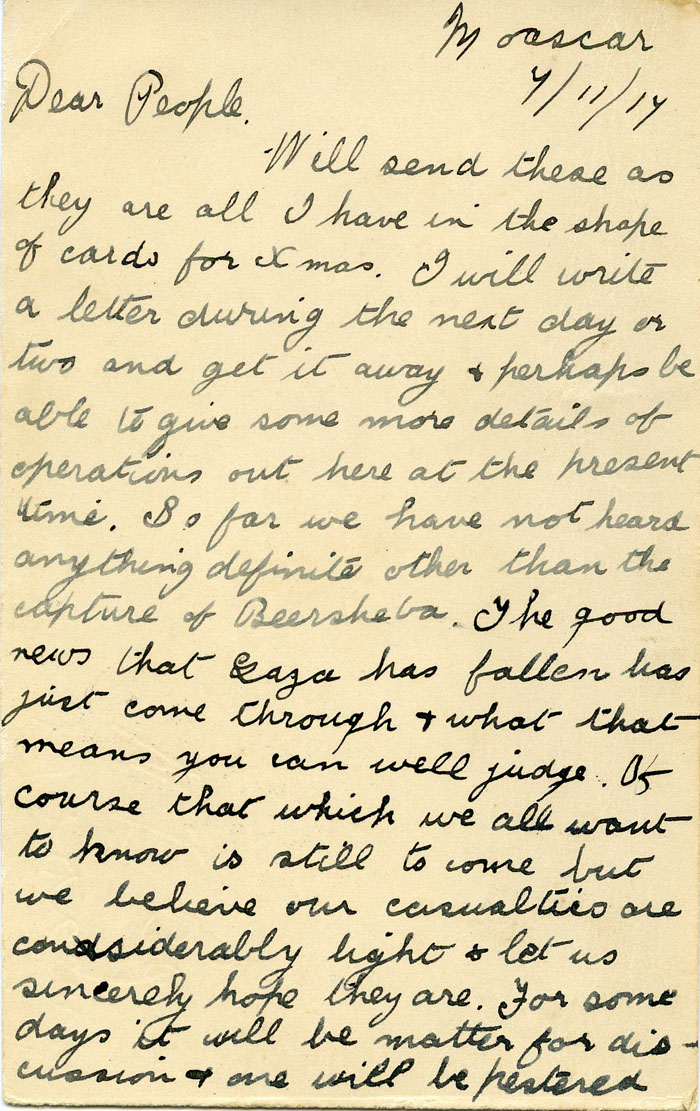 Moascar
7/11/17
Dear People.
Will send these as
they are all I have in the shape
of cards for Xmas. I will write
a letter during the next day or
two and get it away & perhaps be
able to give some more details of
operations out here at the present
time. So far we have not heard
anything definite other than the
capture of Beersheba. The good
news that Gaza has fallen has
just come through & what that
means you can well judge. Of
course that which we all want
to know is still to come but
we believe our casualties are
considerably light & let us
sincerely hope they are. For some
days it will be matter for dis-
cussion & one will be pestered